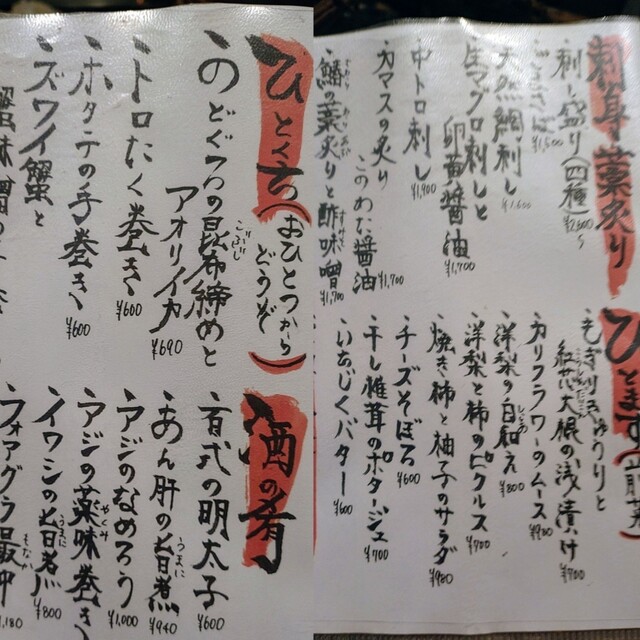 刺身と藁炙り
刺し盛り(四種)
¥2,600〜
ごまさば
¥1,500
天然鯛刺し
¥1,600
生マグロ刺しと
卵黄醤油
¥1,700
中トロ刺し
¥1,900
カマスの炙り
このわた醤油
¥1,700
鰆の藁炙りと酢味噌
¥1,700
ひとまず(前菜)
もぎりきゅうりと
紅芯大根の浅漬け
¥700
カリフラワーのムース
¥900
洋梨の白和え
¥800
洋梨と柿のピクルス
¥700
焼き柿と柚子のサラダ
¥980
チーズそぼろ
¥600
干し椎茸のポタージュ
¥700
いちじくバター
¥600
ひとくち(おひとつから
どうぞ)
のどぐろの昆布締めと
アオリイカ
¥690
トロたく巻き
¥600
ホタテの手巻き
¥600
ズワイ蟹と
酒の肴
百式の明太子
¥600
あん肝の旨煮
うまに
¥940
アジのなめろう
¥1,000
アジの薬味巻き
やくみ
イワシの旨煮
うまに
¥800
フォアグラ最中
もなか
1,180